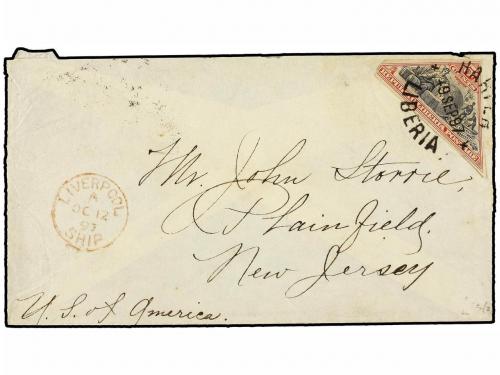 HARPER
19 SEP 97
LIBERIA
LIVERPOOL
A
OC 12
97
SHIP
Mr. John Storrie,
Plainfield.
New Jersey
U.S. of America.